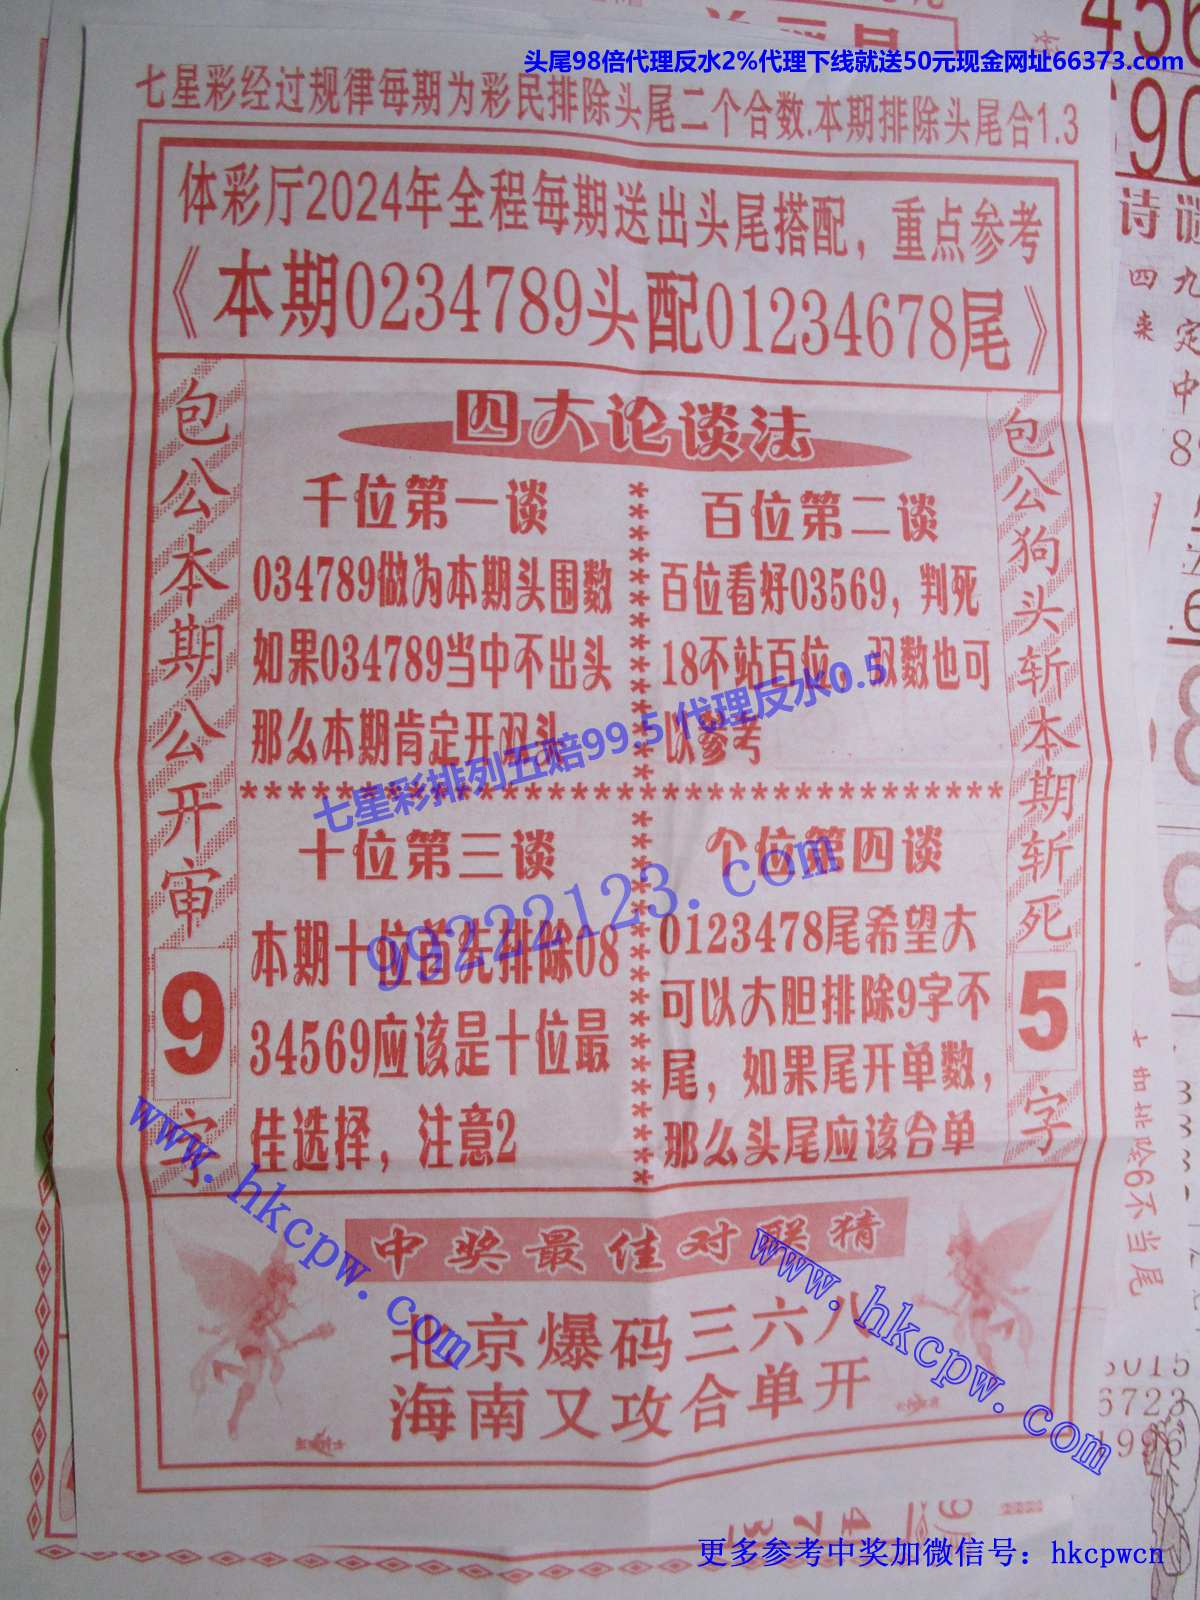 头尾98倍代理反水2%代理下线就送50元现金网址66373.com
七星彩经过规律每期为彩民排除头尾二个合数.本期排除头尾合1.3
体彩厅2024年全程每期送出头尾搭配，重点参考
《本期0234789头配01234678尾》
包公本期公开审9字
四大论谈法
千位第一谈
034789做为本期头围数
如果034789当中不出头
那么本期肯定开双头
百位第二谈
百位看好03569，判死
18不站百位，双数也可
以参考
七星彩排列五赔99.5 代理反水0.5
99222123.com
十位第三谈
本期十位首先排除08
34569应该是十位最
佳选择，注意2
个位第四谈
0123478尾希望大
可以大胆排除9字不
尾，如果尾开单数，
那么头尾应该合单
包公狗头斩本期斩死5字
中奖最佳对联猜
北京爆码三六八
海南又攻合单开
www.hkcpw.com
www.hkcpw.com
更多参考中奖加微信号：hkcpwcn
456
890
诗
四来
九定中
七
6不当尾
6015
6723